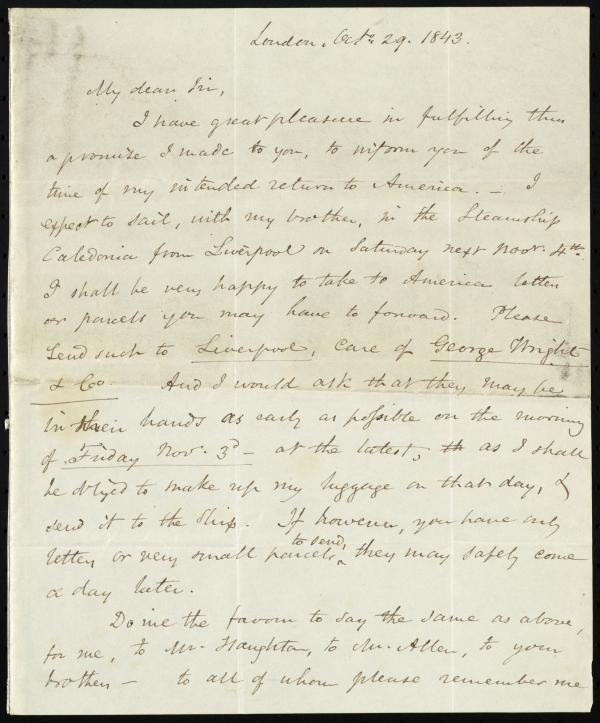 London, Octr. 29. 1843.
My dear Sir,
I have great pleasure in fulfilling thus
a promise I made to you, to inform you of the
time of my intended return to America. — I
expect to sail, with my brother, in the Steamship
Caledonia from Liverpool on Saturday next Novr. 4th.
I shall be very happy to take to America letters
or parcels you may have to forward. Please
send such to Liverpool, care of George Wright
& Co. And I would ask that they may be
in their hands as early as possible on the morning
of Friday Nov. 3d — at the latest, th as I shall
be oblig'd to make up my luggage on that day, &
send it to the Ship. If however, you have only
letters or very small parcels to send, they may safely come
a day later.
Do me the favour to say the same as above,
for me, to Mr. Haughton, to Mr. Allen, to your
brothers — to all of whom please remember me